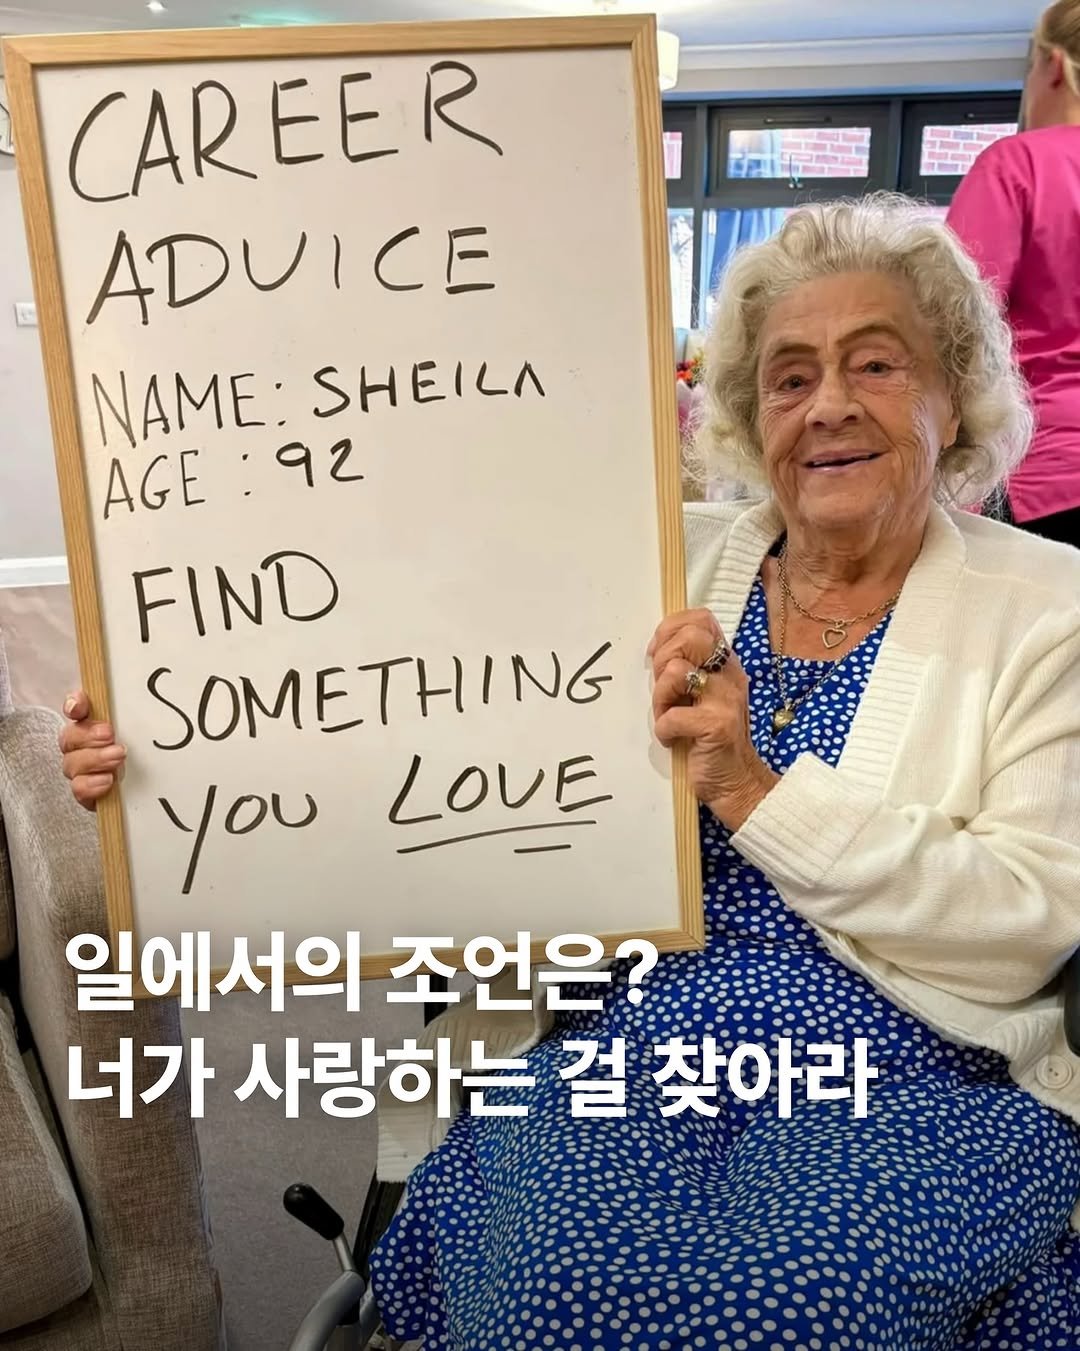 CAREER
ADVICE
NAME: SHEILA
AGE : 92
FIND
SOMETHING
YOU LOVE
일에서의 조언은?
너가 사랑하는 걸 찾아라